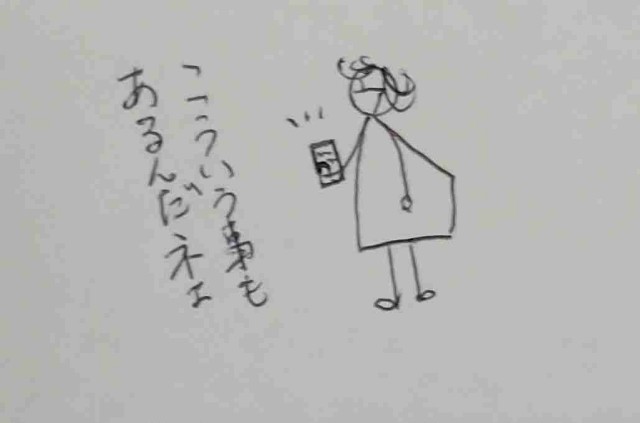 こういう事も
あるんだネェ